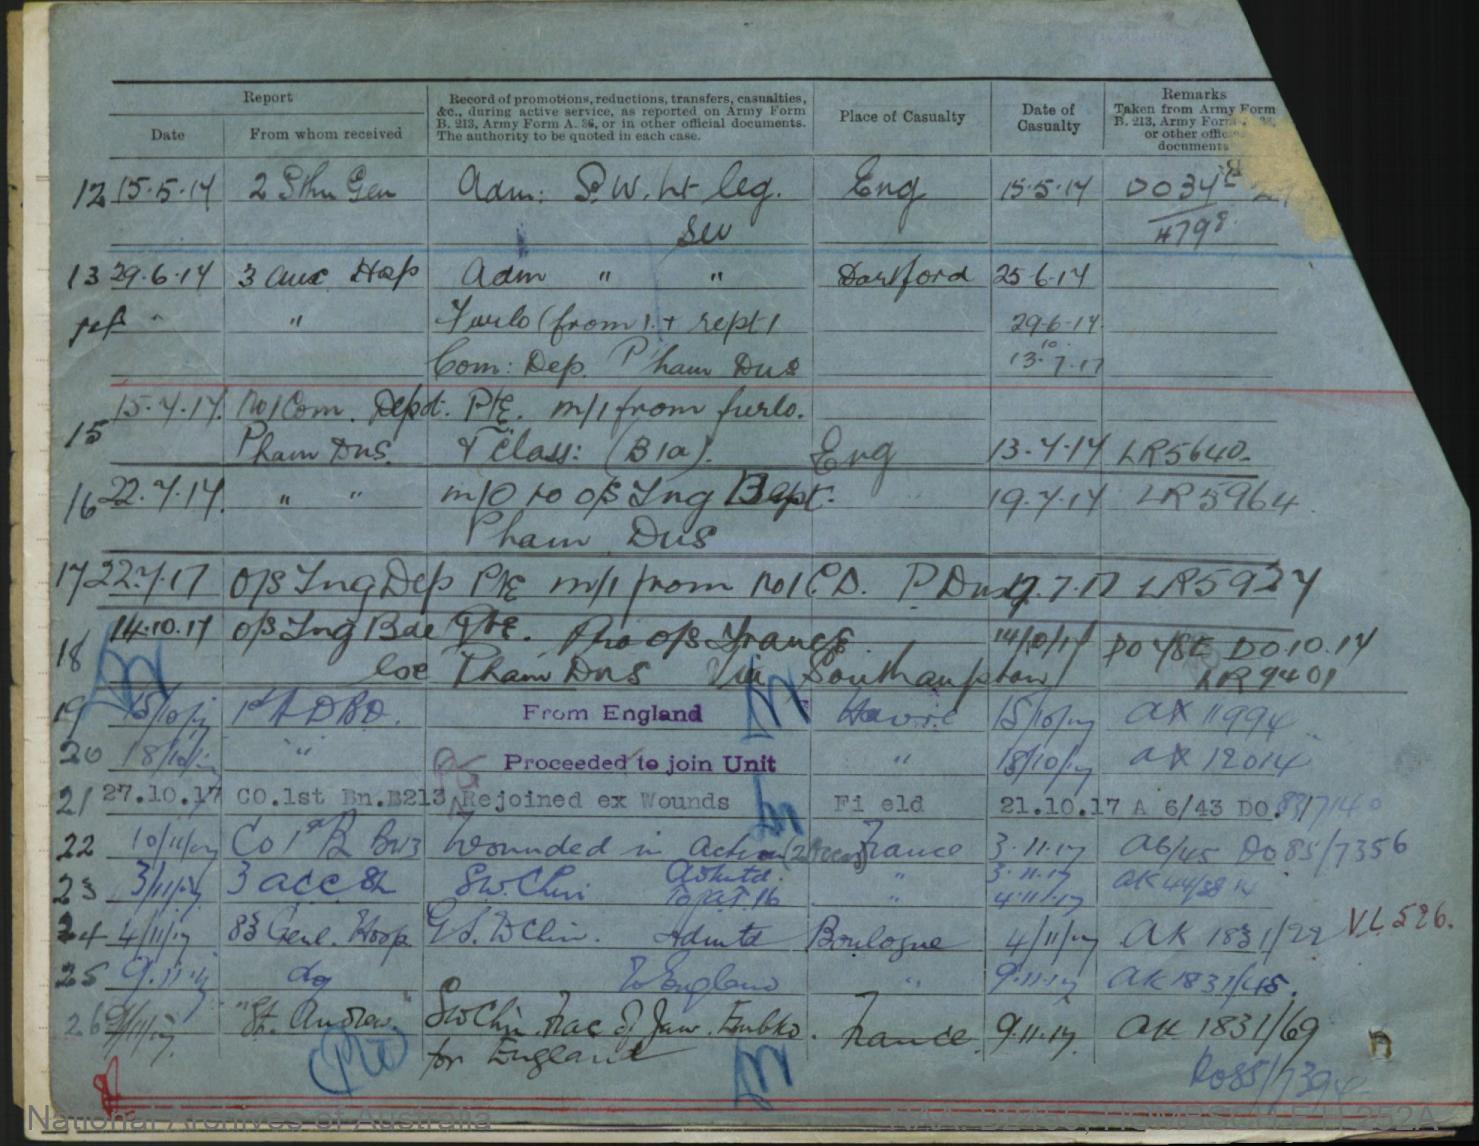 Report
Record of promotions, reductions, transfers, casualties,
&c., during active service, as reported on Army Form
B. 213, Army Form A. 36, or in other official documents.
The authority to be quoted in each case.
Place of Casualty
Date of
Casualty
Remarks
Taken from Army Form
B. 213, Army Form A. 36,
or other official
documents
Date
From whom received
12 15.5.17 2 Sthn Gen Adm: S.W. lt leg. Eng 15.5.17 DO34
sev 4798
13 29.6.17 3 aux Hosp Adm " " Dartford 25.6.17
" " Furlo (from) + rept 29.6.17
Com: Dep. P'ham Dns 13.7.17
15 15.7.17. No1 Com. Depot. Pte. m/i from furlo.
Pham Dns. & Class: (B1a). Eng 13.7.17 LR5640
16 22.7.17. " " m/o to o/s Tng Bept. 19.7.17 LR5964
Pham Dns
17 22.7.17 o/s Tng Dep Pte m/i from No1 C.D. P Dns 7.17 LR5927
18 14.10.17 o/s Tng Bde Pte. Pro o/s France 14/10/17 DO10.17
Pham Dns Via Southampton LR9401
19 15/10/17 1st ADBD. From England Havre 15/10/17 AK 11994
20 18/10/17 " Proceeded to join Unit " 18/10/17 AK 12014
21 27.10.17 CO.1st Bn.B213 Rejoined ex Wounds Field 21.10.17 A 6/43 DO.83/7140
22 10/11/17 Co 1st B B213 Wounded in action (2 Occ) France 3.11.17 A6/45 DO 85/7356
23 3/11/17 3 acc St SW Chin Admtd. " 3.11.17 AK 44/38
To AT.16 " 4.11.17
24 4/11/17 83 Genl. Hosp GSW Chin. Admtd Boulogne 4/11/17 AK 1831/22 VL 526.
25 9.11.17 do To England " 9.11.17 AK 1831/45.
26 9/11/17 "St. Andrew" SW Chin Frac of Jaw. Embkd. France 9.11.17. AK 1831/69
for England DO85/739
National Archives of Australia